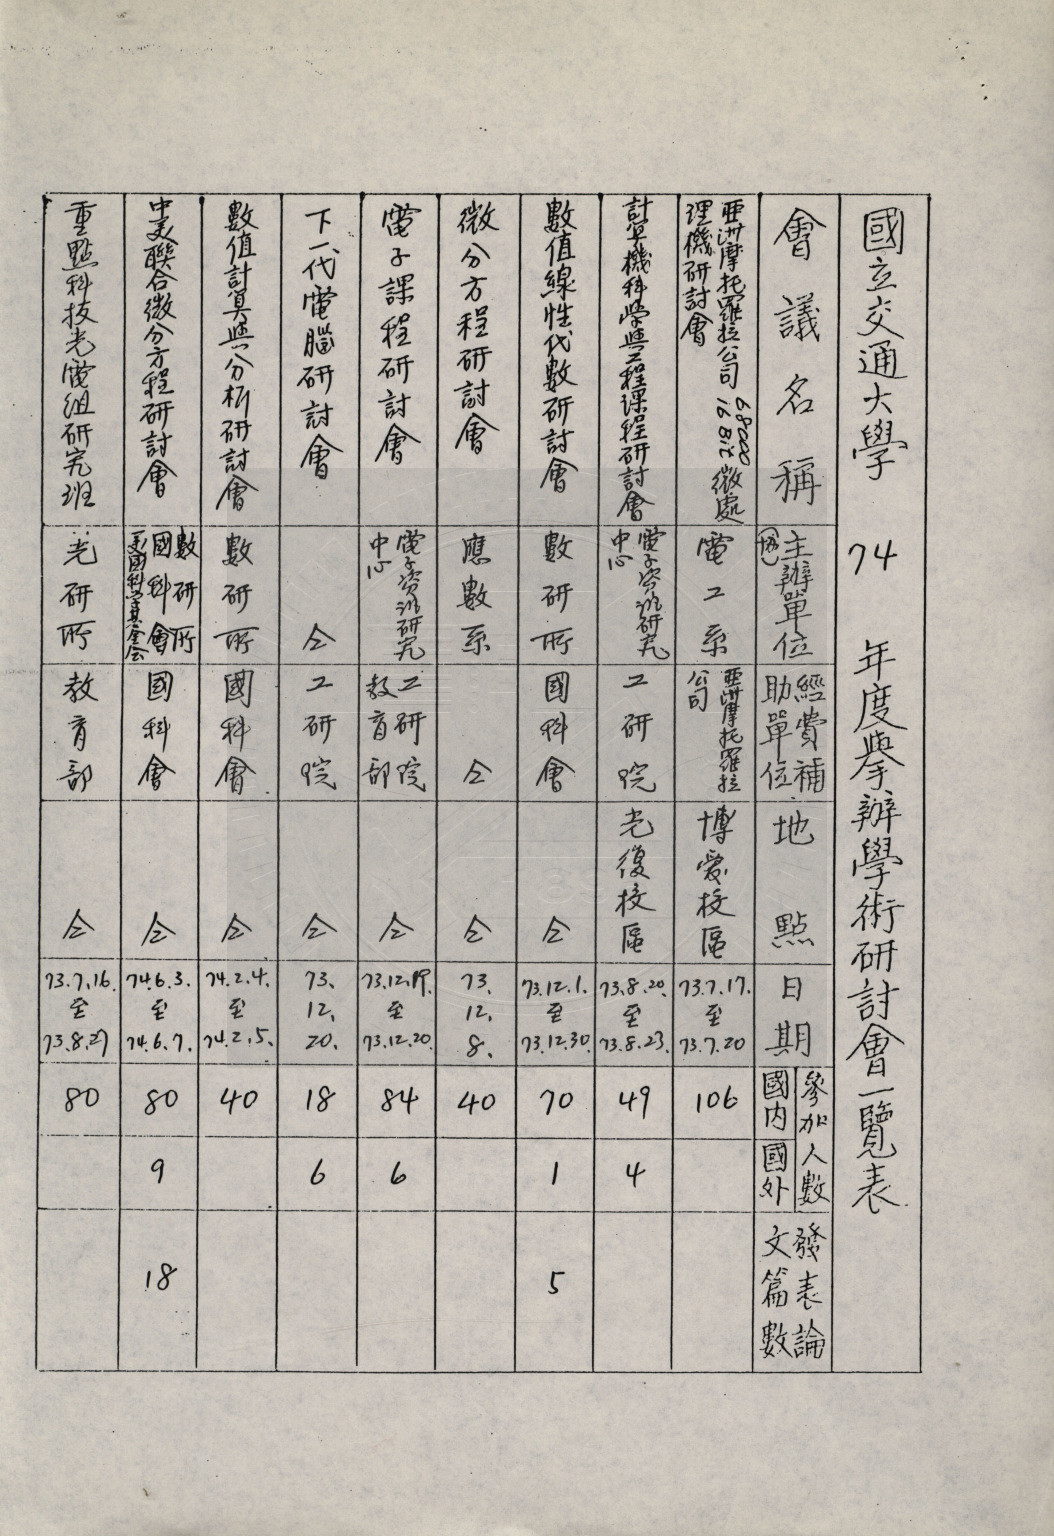 國立交通大學 74 年度舉辦學術研討會一覽表
會議名稱
主辦單位
經費補
助單位
地點
日期
參加人數
國內
國外
發表論
文篇數
亞洲摩托羅拉公司 68000 16 Bit 微處
理機研討會
電工系
亞洲摩托羅拉
公司
博愛校區
73.7.17.
至
73.7.20
106
計算機科學與工程課程研討會
電子資訊研究
中心
工研院
光復校區
73.8.20.
至
73.8.23.
49
4
數值線性代數研討會
數研所
國科會
仝
73.12.1.
至
73.12.30.
70
1
5
微分方程研討會
應數系
仝
仝
73.
12.
8.
40
電子課程研討會
電子資訊研究
中心
工研院
教育部
仝
73.12.19.
至
73.12.20.
84
6
下一代電腦研討會
仝
工研院
仝
73.
12.
20.
18
6
數值計算與分析研討會
數研所
國科會
仝
74.2.4.
至
74.2.5.
40
中美聯合微分方程研討會
數研所
國科會
美國科學基金會
國科會
仝
74.6.3.
至
74.6.7.
80
9
18
重點科技光電組研究班
光研所
教育部
仝
73.7.16.
至
73.8.27
80